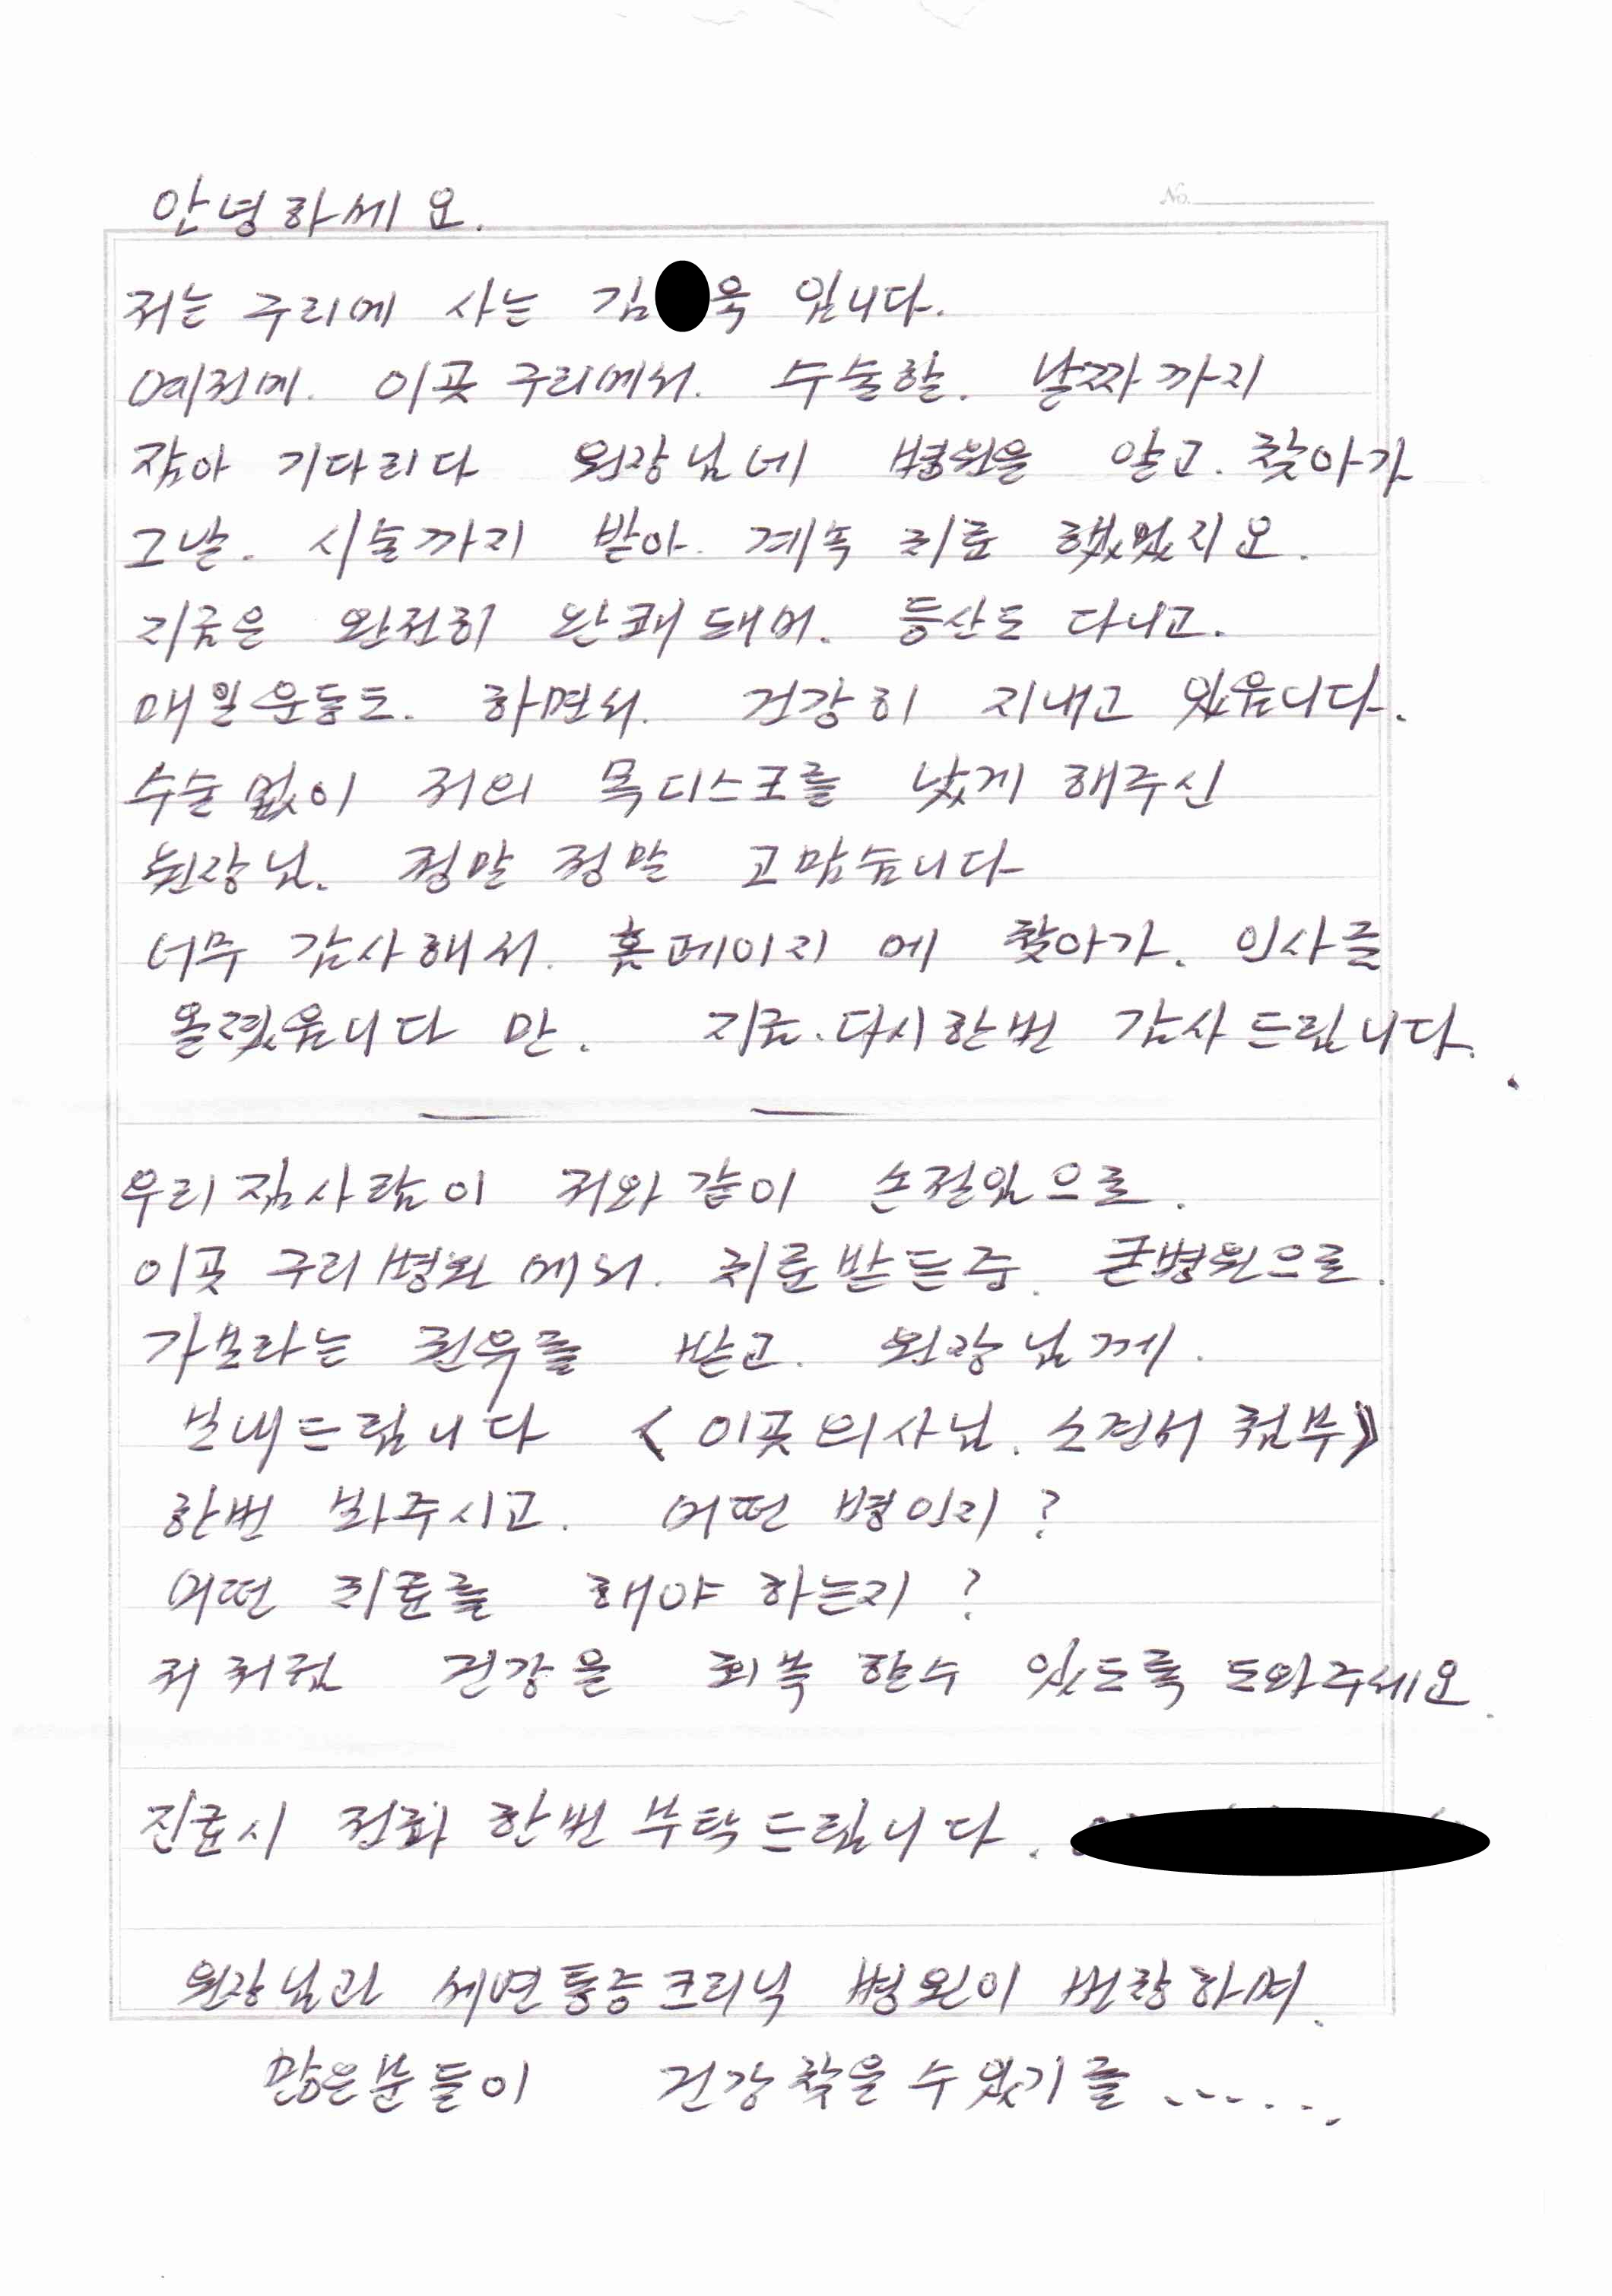 No.
안녕하세요.
저는 구리에 사는 김 욱 입니다.
예전에. 이곳 구리에서. 수술할. 날짜까지
잡아 기다리다 원장님네 병원을 알고. 찾아가
그날. 시술까지 받아. 계속 치료 했었지요.
지금은 완전히 완쾌돼어. 등산도 다니고.
매일운동도. 하면서. 건강히 지내고 있읍니다.
수술없이 저의 목디스크를 낫게 해주신
원장님. 정말 정말 고맙습니다
너무 감사해서. 홈페이지 에 찾아가. 인사를
올렸읍니다 만. 지금.다시한번 감사드립니다.
우리집사람이 저와같이 손절임으로.
이곳 구리병원에서. 치료받든중. 큰병원으로.
가보라는 권유를 받고. 원장님께.
보내드립니다 <이곳의사님. 소견서 첨부》
한번 봐주시고. 어떤 병인지?
어떤 치료를 해야 하는지?
저처럼 건강을 회복 할수 있도록 도와주세요.
진료시 전화 한번 부탁드립니다.
원장님과 세연통증크리닉 병원이 번창하며.
많은분들이 건강찾을 수있기를 ......